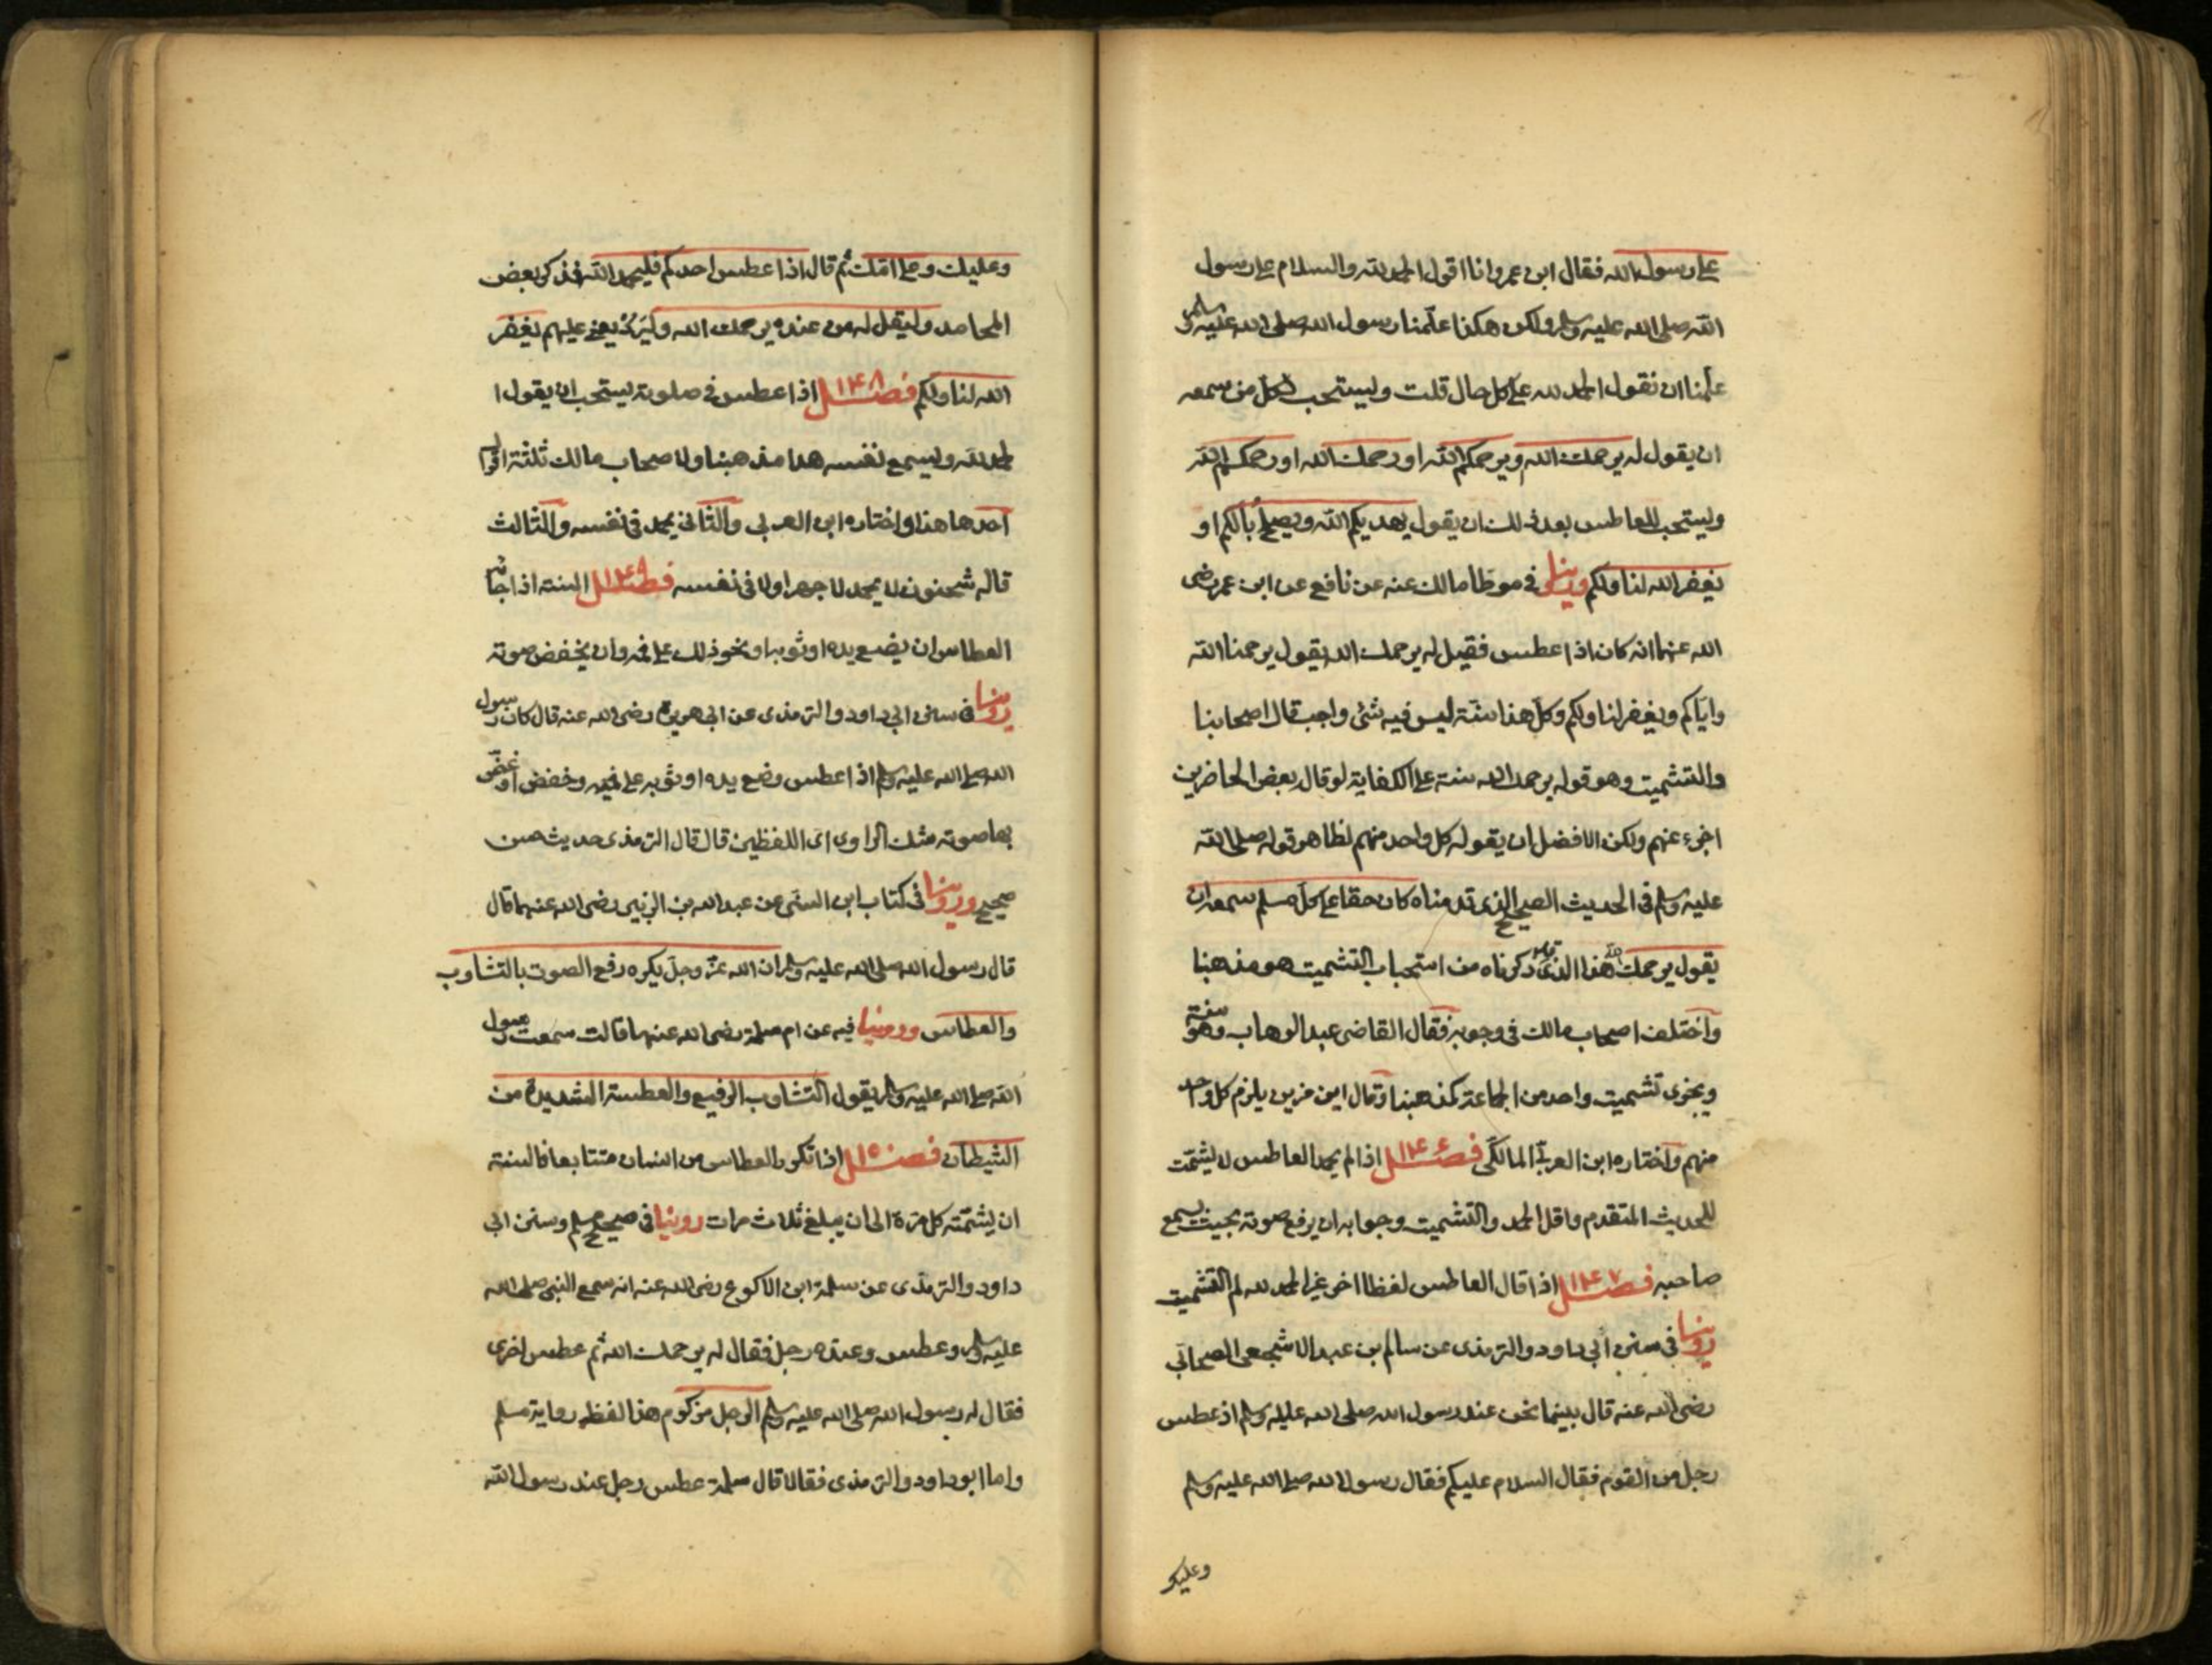 على رسول الله فقال ابن عمر وانا اقول الحمد لله والسلام على رسول
الله صلى الله عليه وسلم ولكن هكذا علّمنا رسول الله صلى الله عليه وسلم
علّمنا ان نقول الحمد لله على كل حال قلت ويستحب لكل من سمعه
ان يقول له يرحمك الله ويرحمكم الله او رحمك الله او رحمكم الله
ويستحب للعاطس بعد ذلك ان يقول يهديكم الله ويصلح بالكم او
يغفر الله لنا ولكم وروينا في موطا مالك عنه عن نافع عن ابن عمر رضى
الله عنهما انه كان اذا عطس فقيل له يرحمك الله يقول يرحمنا الله
وايّاكم ويغفر لنا ولكم وكل هذا سنّة ليس فيه شئ واجب قال اصحابنا
والتشميت وهو قوله يرحمك الله سنة على الكفاية لو قال بعض الحاضرين
اجزء عنهم ولكن الافضل ان يقوله كل واحد منهم لظاهر قوله صلى الله
عليه وسلم فى الحديث الصحيح الذى قدمناه كان حقا على كل مسلم سمعه ان
يقول يرحمك الله هذا الذى ذكرناه من استحباب التشميت هو مذهبنا
واختلف اصحاب مالك فى وجوبه فقال القاضى عبد الوهاب هو سنة
ويجزى تشميت واحد من الجماعة كمذهبنا وقال ابن مزين يلزم كل واحد
منهم واختاره ابن العربىّ المالكى فصل ١٤٦ اذا لم يحمد العاطس لا يشمّت
للحديث المتقدم واقل الحمد والتشميت وجوابه ان يرفع صوته بحيث يسمع
صاحبه فصل ١٤٧ اذا قال العاطس لفظا اخر غير الحمد لله لم التشميت
روينا فى سنن ابى داود والترمذى عن سالم بن عبد الاشجعى الصحابى
رضى الله عنه قال بينما نحن عند رسول الله صلى الله عليه وسلم اذ عطس
رجل من القوم فقال السلام عليكم فقال رسول الله صلى الله عليه وسلم
وعليك
وعليك وعلى امّك ثم قال اذا عطس احدكم فليحمد الله فذكر بعض
المحامد وليقل له من عنده يرحمك الله وليرد يعنى عليهم يغفر
الله لنا ولكم فصل ١٤٨ اذا عطس فى صلوته يستحب ان يقول ا
لحمد لله ويسمع نفسه هذا مذهبنا ولاصحاب مالك ثلثة اقوال
احدها هذا واختاره ابن العربى والثانى يحمد فى نفسه والثالث
قاله سحنون لا يحمد لا جهرا ولا فى نفسه فصل ١٤٩ السنة اذا جاءه
العطاس ان يضع يده او ثوبه او نحو ذلك على فمه وان يخفض صوته
روينا فى سنن ابى داود والترمذى عن ابى هريرة رضى الله عنه قال كان رسول
الله صلى الله عليه وسلم اذا عطس وضع يده او ثوبه على فيه وخفض او غضّ
بها صوته شك الراوى اى اللفظين قال قال الترمذى حديث حسن
صحيح وروينا فى كتاب ابن السنى عن عبد الله بن الزبير رضى الله عنهما قال
قال رسول الله صلى الله عليه وسلم ان الله عزّ وجلّ يكره رفع الصوت بالتثاوب
والعطاس وروينا فيه عن ام سلمة رضى الله عنها قالت سمعت رسول
الله صلى الله عليه وسلم يقول التثاوب الرفيع والعطسة الشديدة من
الشيطان فصل ١٥٠ اذا تكرر العطاس من انسان متتابعا فالسنة
ان يشمّته كل مرّة الى ان يبلغ ثلاث مرات روينا فى صحيح مسلم وسنن ابى
داود والترمذى عن سلمة ابن الاكوع رضى الله عنه انه سمع النبى صلى الله
عليه وسلم وعطس وعنده رجل فقال له يرحمك الله ثم عطس اخرى
فقال له رسول الله صلى الله عليه وسلم الرجل مزكوم هذا لفظ رواية مسلم
واما ابو داود والترمذى فقالا قال سلمة عطس رجل عند رسول الله